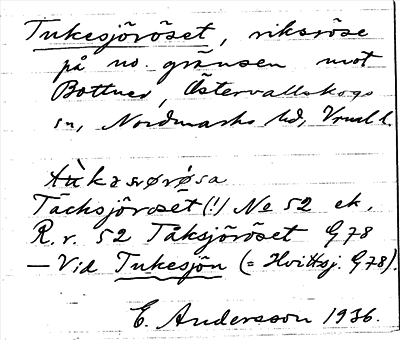 Tukesjöröset, riksröse
på no. gränsen mot
Bottner, Östervallskogs
sn, Nordmarks hd, Vrml l.
Täcksjöröset (!) Ne 52 ek.
R. r. 52 Tåksjöröset G 78
— Vid Tukesjön (= Hvittsj. G 78).
E. Andersson 1936.